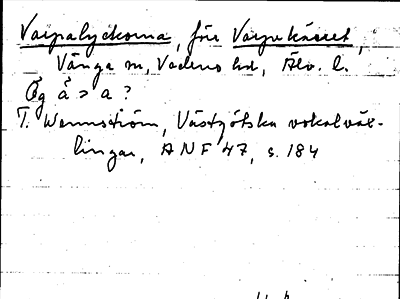 Vaipalyckorna, före Vaipekärret,
Vånga sn, Vadens hd, Älv. l.
Fg å > a ?
T. Wennström, Västgötska vokalväx-
lingar, ANF 47, s. 184